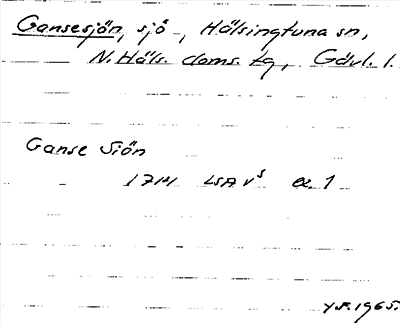 Gansesjön, sjö, Hälsingtuna sn,
N. Häls. doms. tg, Gävl. l.
Ganse Siön
1714 LSA V⁵ a. 1
Y.F. 1965.